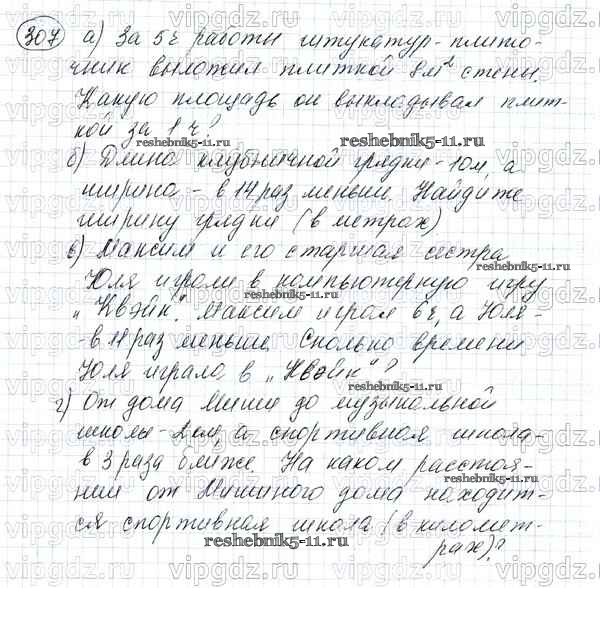 307 а) За 5 ч работы штукатур-плиточ-
ник выложил плиткой 8 м² стены.
Какую площадь он выкладывал плит-
кой за 1 ч?
reshebnik5-11.ru
б) Длина клубничной грядки - 10 м, а
ширина - в 14 раз меньше. Найдите
ширину грядки (в метрах)
в) Максим и его старшая сестра
Юля играли в компьютерную игру
reshebnik5-11.ru
"Квэйк". Максим играл 6 ч, а Юля-
- в 11 раз меньше. Сколько времени
Юля играла в "Квэйк"?
reshebnik5-11.ru
г) От дома Миши до музыкальной
школы - 2 км, а спортивная школа -
в 3 раза ближе. На каком расстоя-
reshebnik5-11.ru
нии от Мишиного дома находит-
ся спортивная школа (в километ-
reshebnik5-11.ru
рах)?